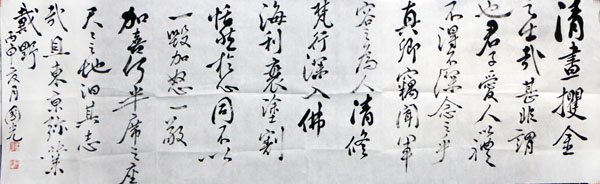 清晝攫金
之士哉甚非謂
也君子愛人以禮
不得不深念之乎
真卿竊聞軍
容之為人清修
梵行深入佛
海利衰塗割
恬然於心固不以
一毀加怒一敬
加喜何半席之座
咫尺之地汨其志
哉且東京弥業
戴野
丙申夏月